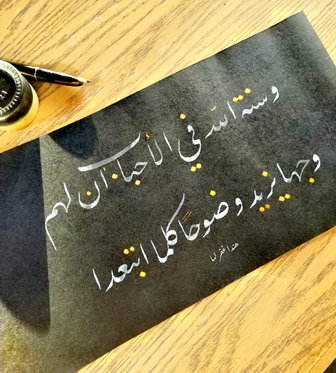 وسنة الله في الأحباب أن لهم
وجها يزيد وضوحاً كلما ابتعدا